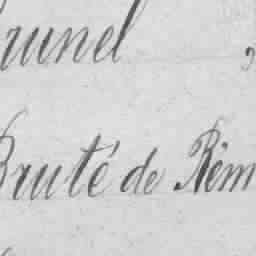 runel ,
Bruté de Rém